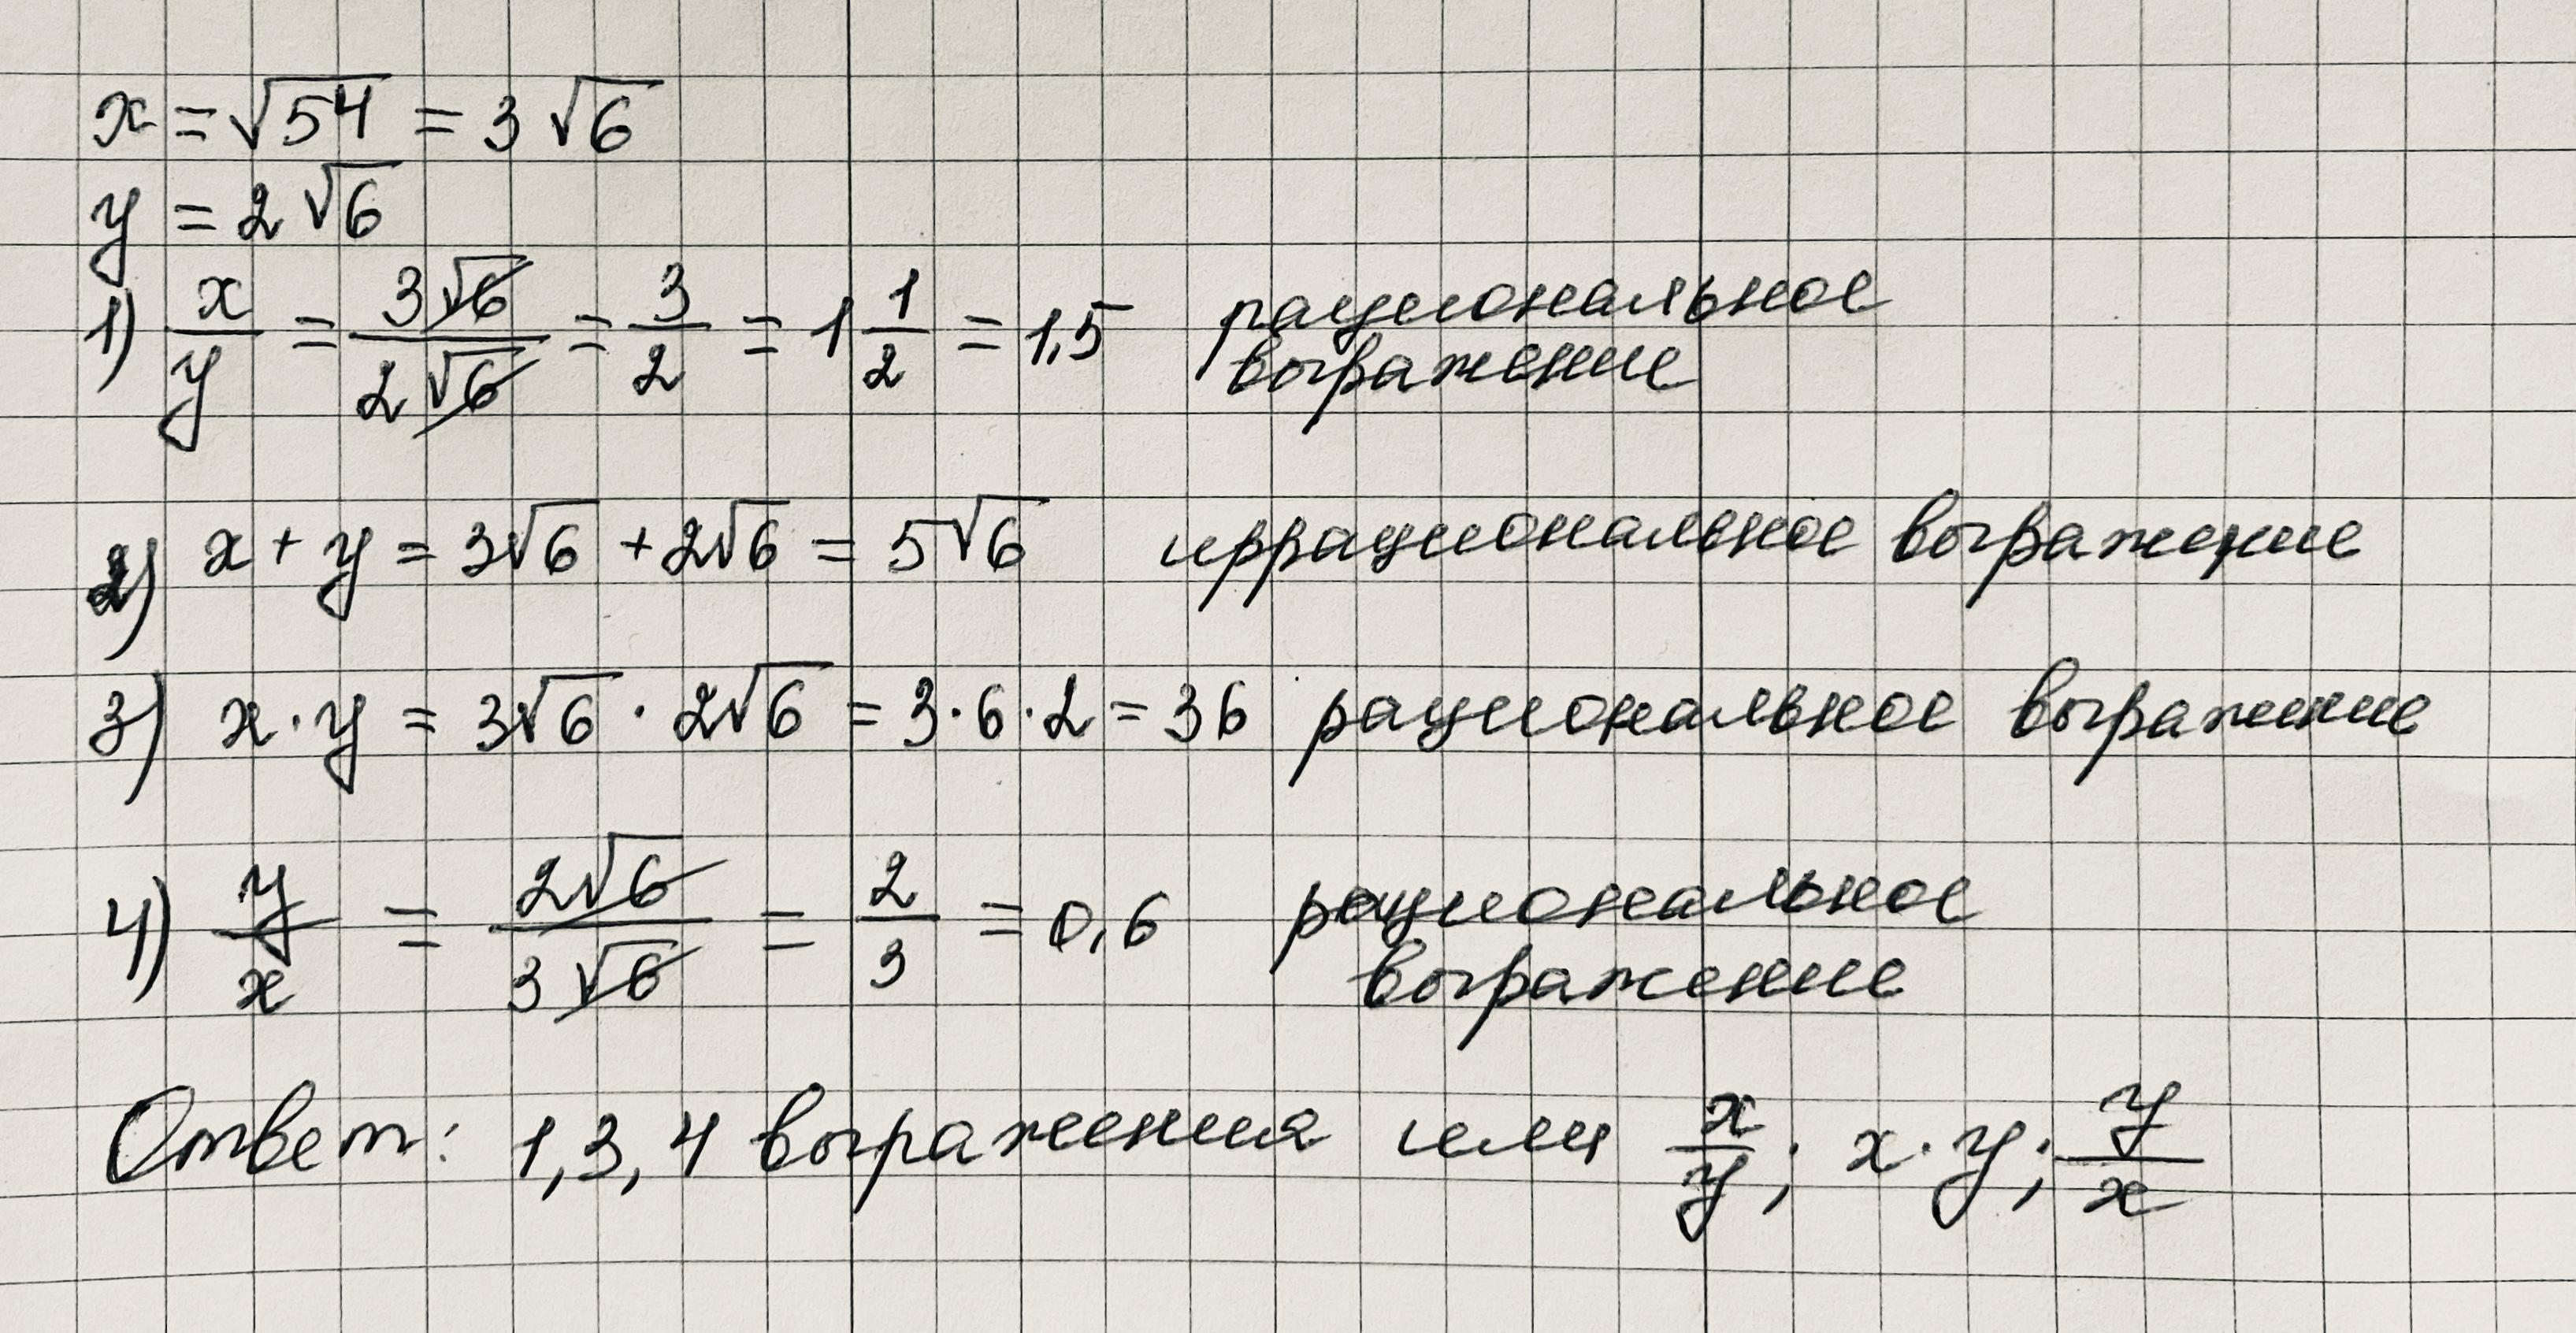 x = √54 = 3√6
y = 2√6
1) x/y = 3√6/2√6 = 3/2 = 1 1/2 = 1,5 рациональное
выражение
2) x + y = 3√6 + 2√6 = 5√6 иррациональное выражение
3) x · y = 3√6 · 2√6 = 3 · 6 · 2 = 36 рациональное выражение
4) y/x = 2√6/3√6 = 2/3 = 0,6 рациональное
выражение
Ответ: 1, 3, 4 выражения или x/y; x · y; y/x